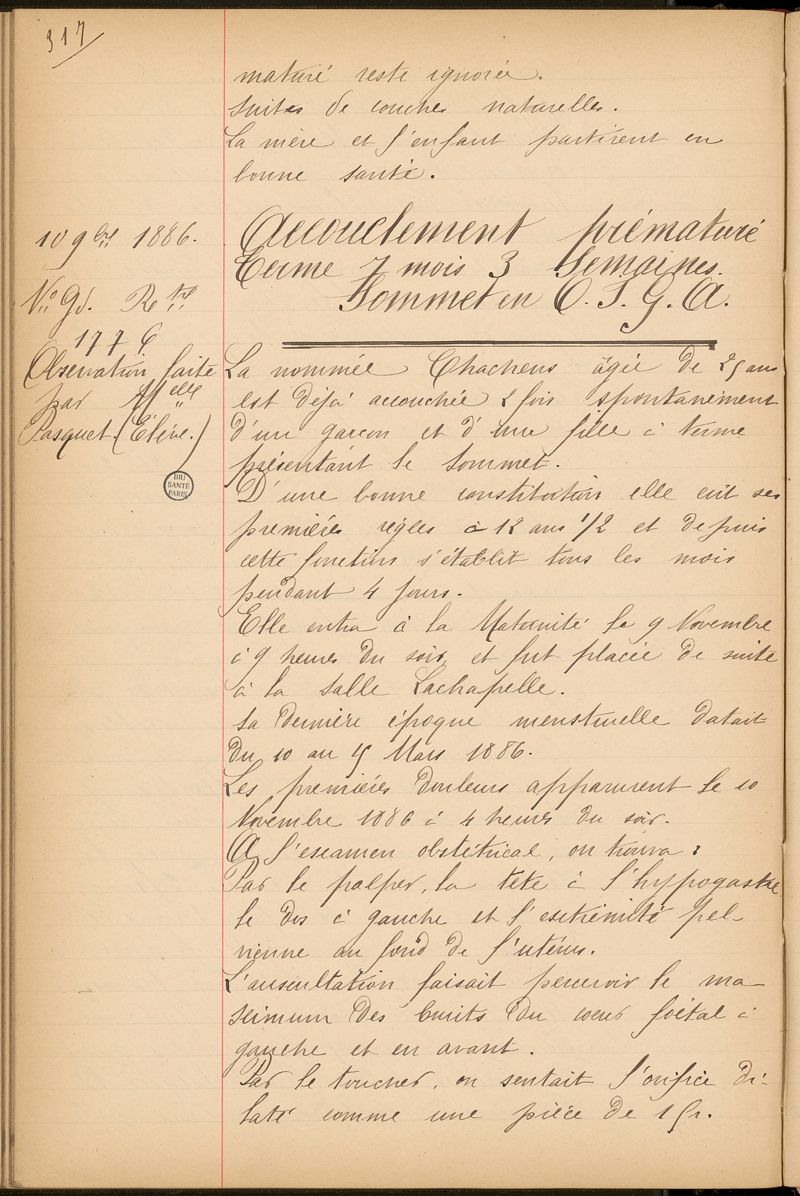 317
maturé reste ignorée.
Suites de couches naturelles.
La mère et l'enfant partirent en
bonne santé.
10 9bre 1886.
No Gd. Rtre
1776
Observation faite
par Melle
Pasquet. (Élève.)
BIU
SANTÉ
PARIS
Accouchement prématuré
Terme 7 mois 3 Semaines.
Sommet en O. I. G. A.
La nommée Chachens âgée de 25 ans
est déjà accouchée 2 fois spontanément
d'un garçon et d'une fille à terme
présentant le sommet.
D'une bonne constitution elle eût ses
premières règles à 12 ans 1/2 et depuis
cette fonction s'établit tous les mois
pendant 4 jours.
Elle entra à la Maternité le 9 Novembre
à 9 heures du soir, et fut placée de suite
à la salle Lachapelle.
Sa dernière époque menstruelle datait
du 10 au 15 Mars 1886.
Les premières douleurs apparurent le 10
Novembre 1886 à 4 heures du soir.
A l'examen obstétrical, on trouva :
Par le palper, la tête à l'hypogastre
le dos à gauche et l'extrémité pel-
vienne au fond de l'utérus.
L'auscultation faisait percevoir le ma-
ximum des bruits du coeur foetal à
gauche et en avant.
Par le toucher, on sentait l'orifice di-
laté comme une pièce de 1 fr.